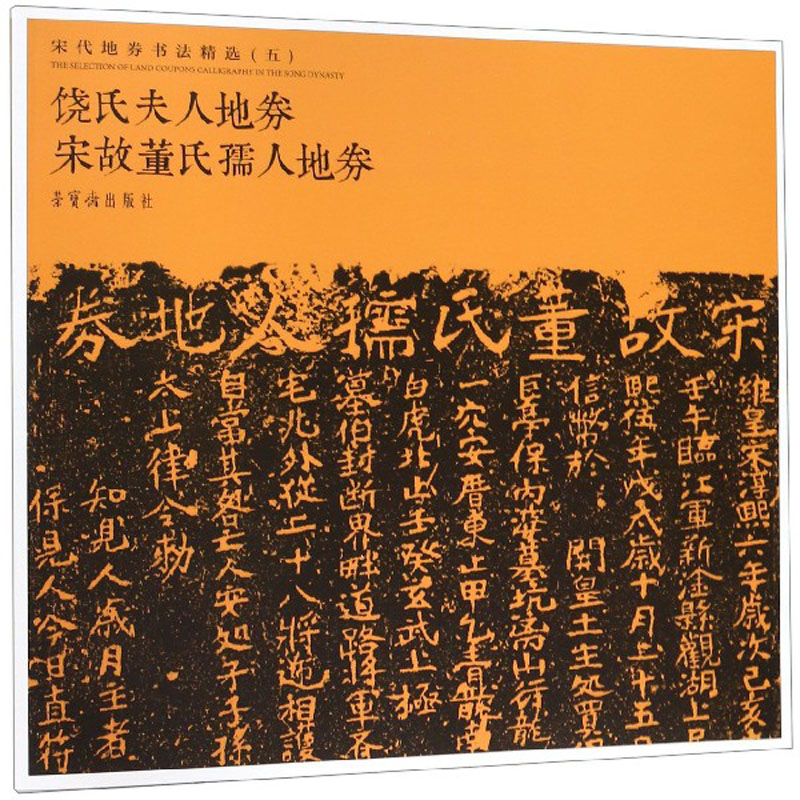 宋代地券书法精选(五)
THE SELECTION OF LAND COUPONS CALLIGRAPHY IN THE SONG DYNASTY
饶氏夫人地券
宋故董氏孺人地券
荣宝斋出版社
宋故董氏孺人地券
維皇宋淳熙六年歲次己亥
壬午臨江軍新淦縣觀湖上
熙伍年戊戌歲十月二十五日
信幣於 開皇土主處買得
巨亭保內 墓坑 山行龍
一穴安厝東止甲乙青龍南
白虎北止壬癸玄武上極
墓伯封斷界畔道路將軍齊
宅兆外從二十八將迎相護
自當其咎亡人安処子子孫
太上律令勑
知見人歲月主者
保見人今日直符